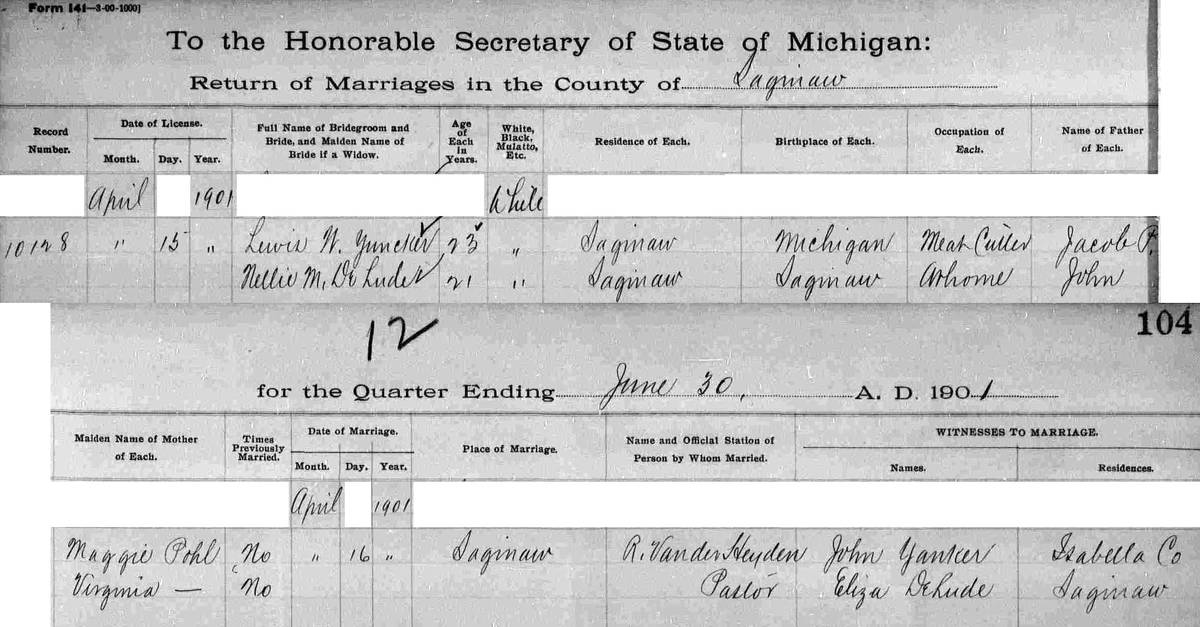 Form 141—3-00-1000]
To the Honorable Secretary of State of Michigan:
Return of Marriages in the County of Saginaw
Record Number. Date of License. Month. Day. Year. Full Name of Bridegroom and Bride, and Maiden Name of Bride if a Widow. Age of Each in Years. White, Black, Mulatto, Etc. Residence of Each. Birthplace of Each. Occupation of Each. Name of Father of Each.
April 1901 White
10128 " 15 " Lewis W. Yuncker 23 " Saginaw Michigan Meat Cutter Jacob P.
Nellie M. DeLude 21 " Saginaw Saginaw At home John
12 104
for the Quarter Ending June 30, A. D. 1901
Maiden Name of Mother of Each. Times Previously Married. Date of Marriage. Month. Day. Year. Place of Marriage. Name and Official Station of Person by Whom Married. WITNESSES TO MARRIAGE. Names. Residences.
April 1901
Maggie Pohl No " 16 " Saginaw R. VanderHeyden John Yanker Isabella Co
Virginia — No Pastor Eliza DeLude Saginaw